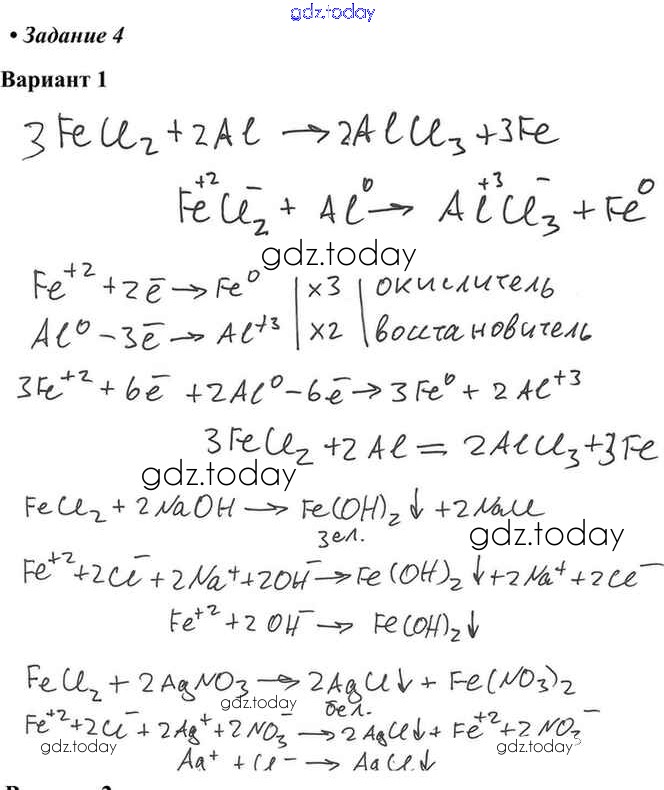 gdz.today
• Задание 4
Вариант 1
3FeCl₂ + 2Al → 2AlCl₃ + 3Fe
Fe⁺²Cl₂⁻ + Al⁰ → Al⁺³Cl₃⁻ + Fe⁰
gdz.today
Fe⁺² + 2ē → Fe⁰ | ×3 | окислитель
Al⁰ – 3ē → Al⁺³ | ×2 | восстановитель
3Fe⁺² + 6ē + 2Al⁰ – 6ē → 3Fe⁰ + 2Al⁺³
3FeCl₂ + 2Al = 2AlCl₃ + 3Fe
gdz.today
FeCl₂ + 2NaOH → Fe(OH)₂↓ + 2NaCl
зел.
gdz.today
Fe⁺² + 2Cl⁻ + 2Na⁺ + 2OH⁻ → Fe(OH)₂↓ + 2Na⁺ + 2Cl⁻
Fe⁺² + 2OH⁻ → Fe(OH)₂↓
FeCl₂ + 2AgNO₃ → 2AgCl↓ + Fe(NO₃)₂
gdz.today
бел.
Fe⁺² + 2Cl⁻ + 2Ag⁺ + 2NO₃⁻ → 2AgCl↓ + Fe⁺² + 2NO₃⁻
gdz.today
gdz.today
Ag⁺ + Cl⁻ → AgCl↓